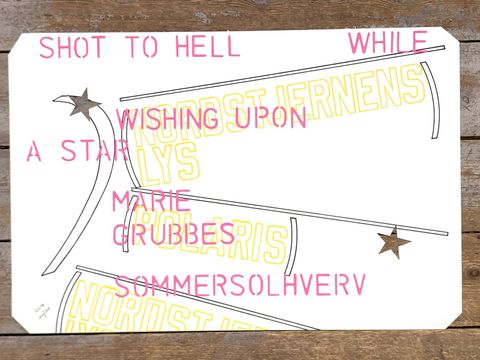 SHOT TO HELL WHILE
NORDSTJERNENS
WISHING UPON
LYS
A STAR
MARIE
POLARIS
GRUBBES
SOMMERSOLHVERV
NORDSTJERNENS